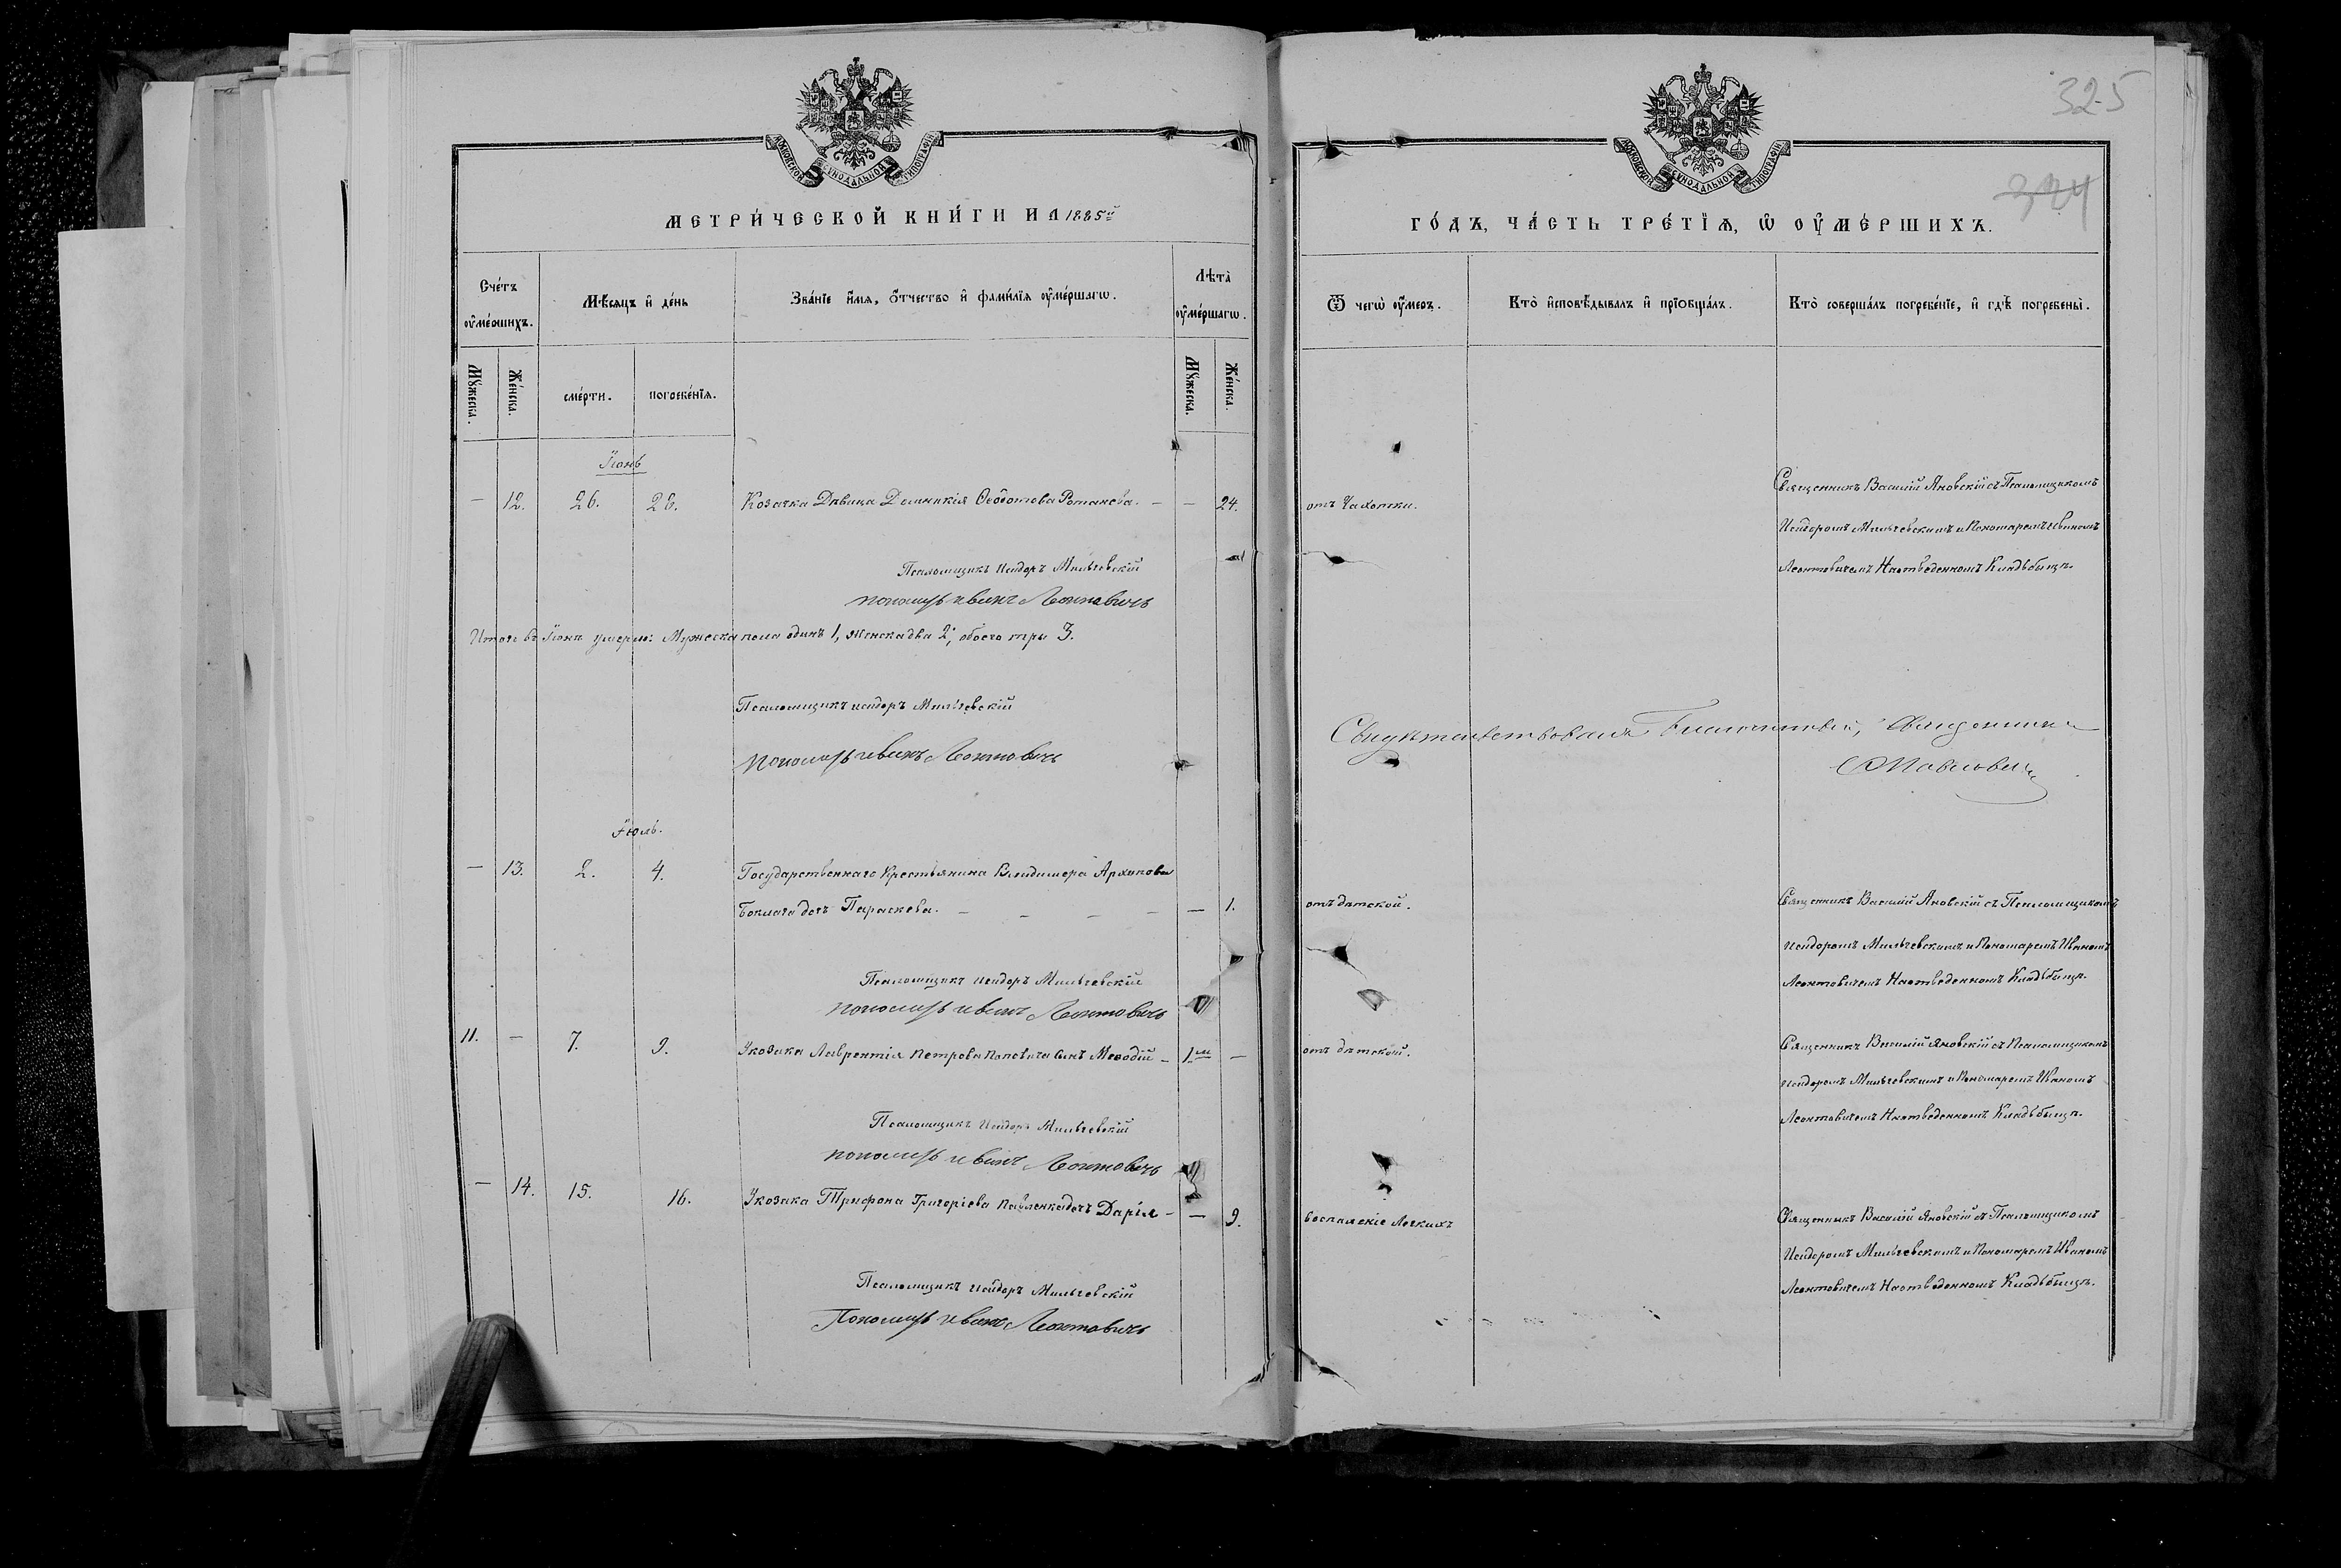 325
324
МОСКОВСКОЙ СѴНОДАЛЬНОЙ ТИПОГРАФІИ
МОСКОВСКОЙ СѴНОДАЛЬНОЙ ТИПОГРАФІИ
МЕТРИ́ЧЕСКОЙ КНИ́ГИ НА 1885й
ГО́ДЪ, ЧА́СТЬ ТРЕ́ТЇѦ, Ѡ ОУ҆МЕ́РШИХЪ.
Сче́тъ оу҆ме́ршихъ.
Мѣ́сяцъ и҆ де́нь
Зва́нїе и҆́мя, ѻ҆́тчество и҆ фами́лїя оу҆ме́ршагѡ.
Лѣ́та оу҆ме́ршагѡ.
Ѿ чегѡ̀ оу҆́меръ.
Кто̀ и҆сповѣ́дывалъ и҆ прїѡбща́лъ.
Кто̀ соверша́лъ погребе́нїе, и҆ гдѣ̀ погребены̀.
Мꙋ́жеска.
Же́нска.
сме́рти.
погребе́нїя.
Мꙋ́жеска.
Же́нска.
Іюнь
— 12. 26. 28. Козачка Дѣвица Домникія Ѳеодотова Романова. — — 24. отъ Чахотки.
Священникъ Василій Яновскій съ Псаломщикомъ
Исидоромъ Мильчевскимъ и Пономаремъ Иваномъ
Леонтовичемъ На отведенномъ Кладьбищѣ.
Псаломщикъ Исидоръ Мильчевскій
Пономарь Иванъ Леонтовичъ
Итого въ Іюнѣ умерло: Мужеска пола одинъ 1, женска два 2; обоего три 3.
Псаломщикъ Исидоръ Мильчевскій
Пономарь Иванъ Леонтовичъ
Свидѣтельствовалъ Благочинный, Священникъ
Іюль.
— 13. 2. 4. Государственнаго Крестьянина Владимера Архипова
дочь Параскева. — — — — — 1. отъ дѣтской.
Священникъ Василій Яновскій съ Псаломщикомъ
Исидоромъ Мильчевскимъ и Пономаремъ Иваномъ
Леонтовичемъ На отведенномъ Кладьбищѣ.
Псаломщикъ Исидоръ Мильчевскій
Пономарь Иванъ Леонтовичъ
11. — 7. 9. У козака Лаврентія Петрова Поповича сынъ Меѳодій — 1 — отъ дѣтской.
Священникъ Василій Яновскій съ Псаломщикомъ
Исидоромъ Мильчевскимъ и Пономаремъ Иваномъ
Леонтовичемъ На отведенномъ Кладьбищѣ.
Псаломщикъ Исидоръ Мильчевскій
Пономарь Иванъ Леонтовичъ
— 14. 15. 16. У козака Трифона Григоріева Павленка дочь Дарія — — 9. воспаленіе Легкихъ
Священникъ Василій Яновскій съ Псаломщикомъ
Исидоромъ Мильчевскимъ и Пономаремъ Иваномъ
Леонтовичемъ На отведенномъ Кладьбищѣ.
Псаломщикъ Исидоръ Мильчевскій
Пономарь Иванъ Леонтовичъ